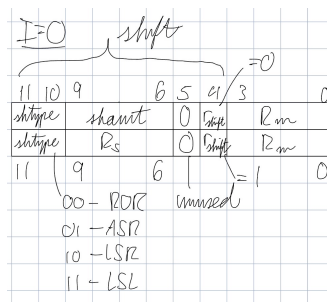 I=0 shift
=0
11 10 9 6 5 4 3 0
shtype shamt 0 Tshift Rm
shtype Rs 0 Tshift Rm
11 9 6 =1 0
00 - ROR unused
01 - ASR
10 - LSR
11 - LSL